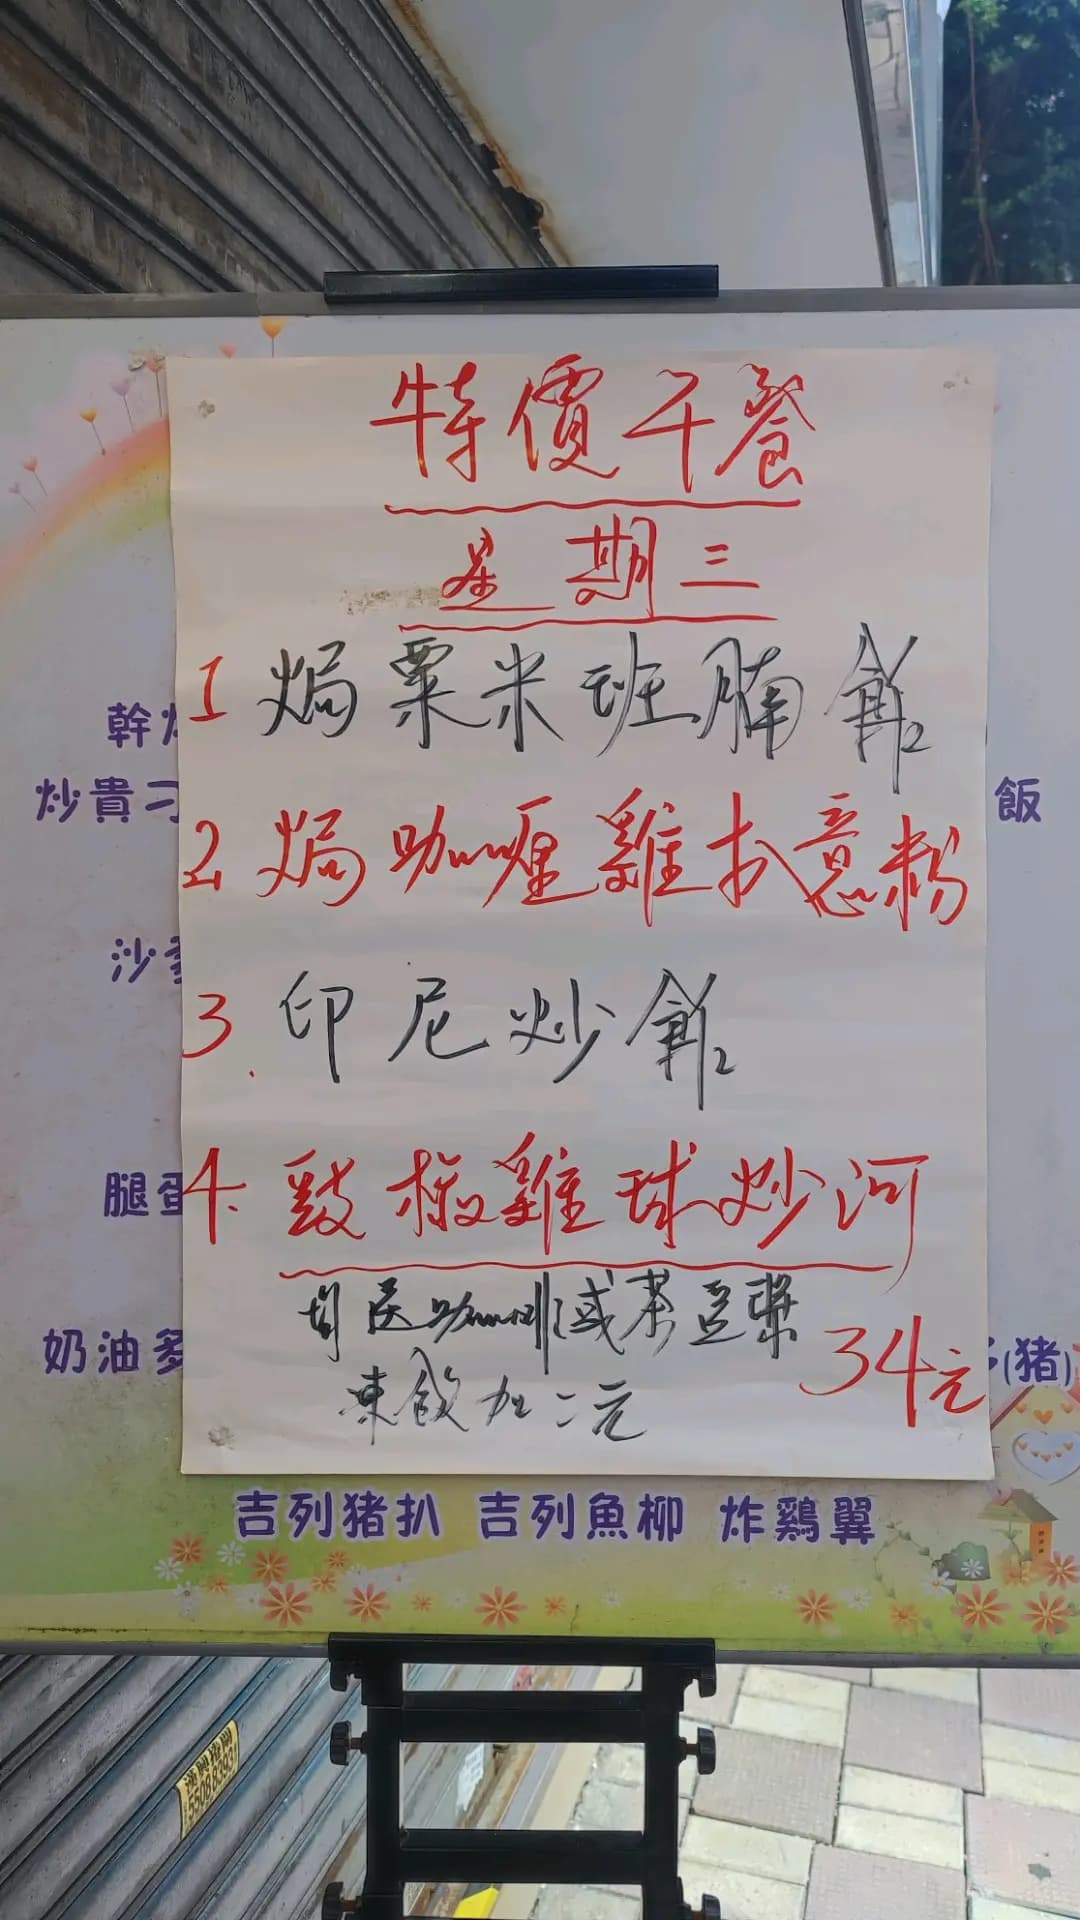 特價午餐
星期三
1 焗粟米班腩飯
2. 焗咖喱雞扒意粉
3. 印尼炒飯
4. 豉椒雞球炒河
咖啡或茶豆漿
34元
凍飲加二元
幹炒
炒貴刁
飯
沙
腿蛋
奶油多
(猪)
吉列猪扒 吉列魚柳 炸鷄翼
5508 8393